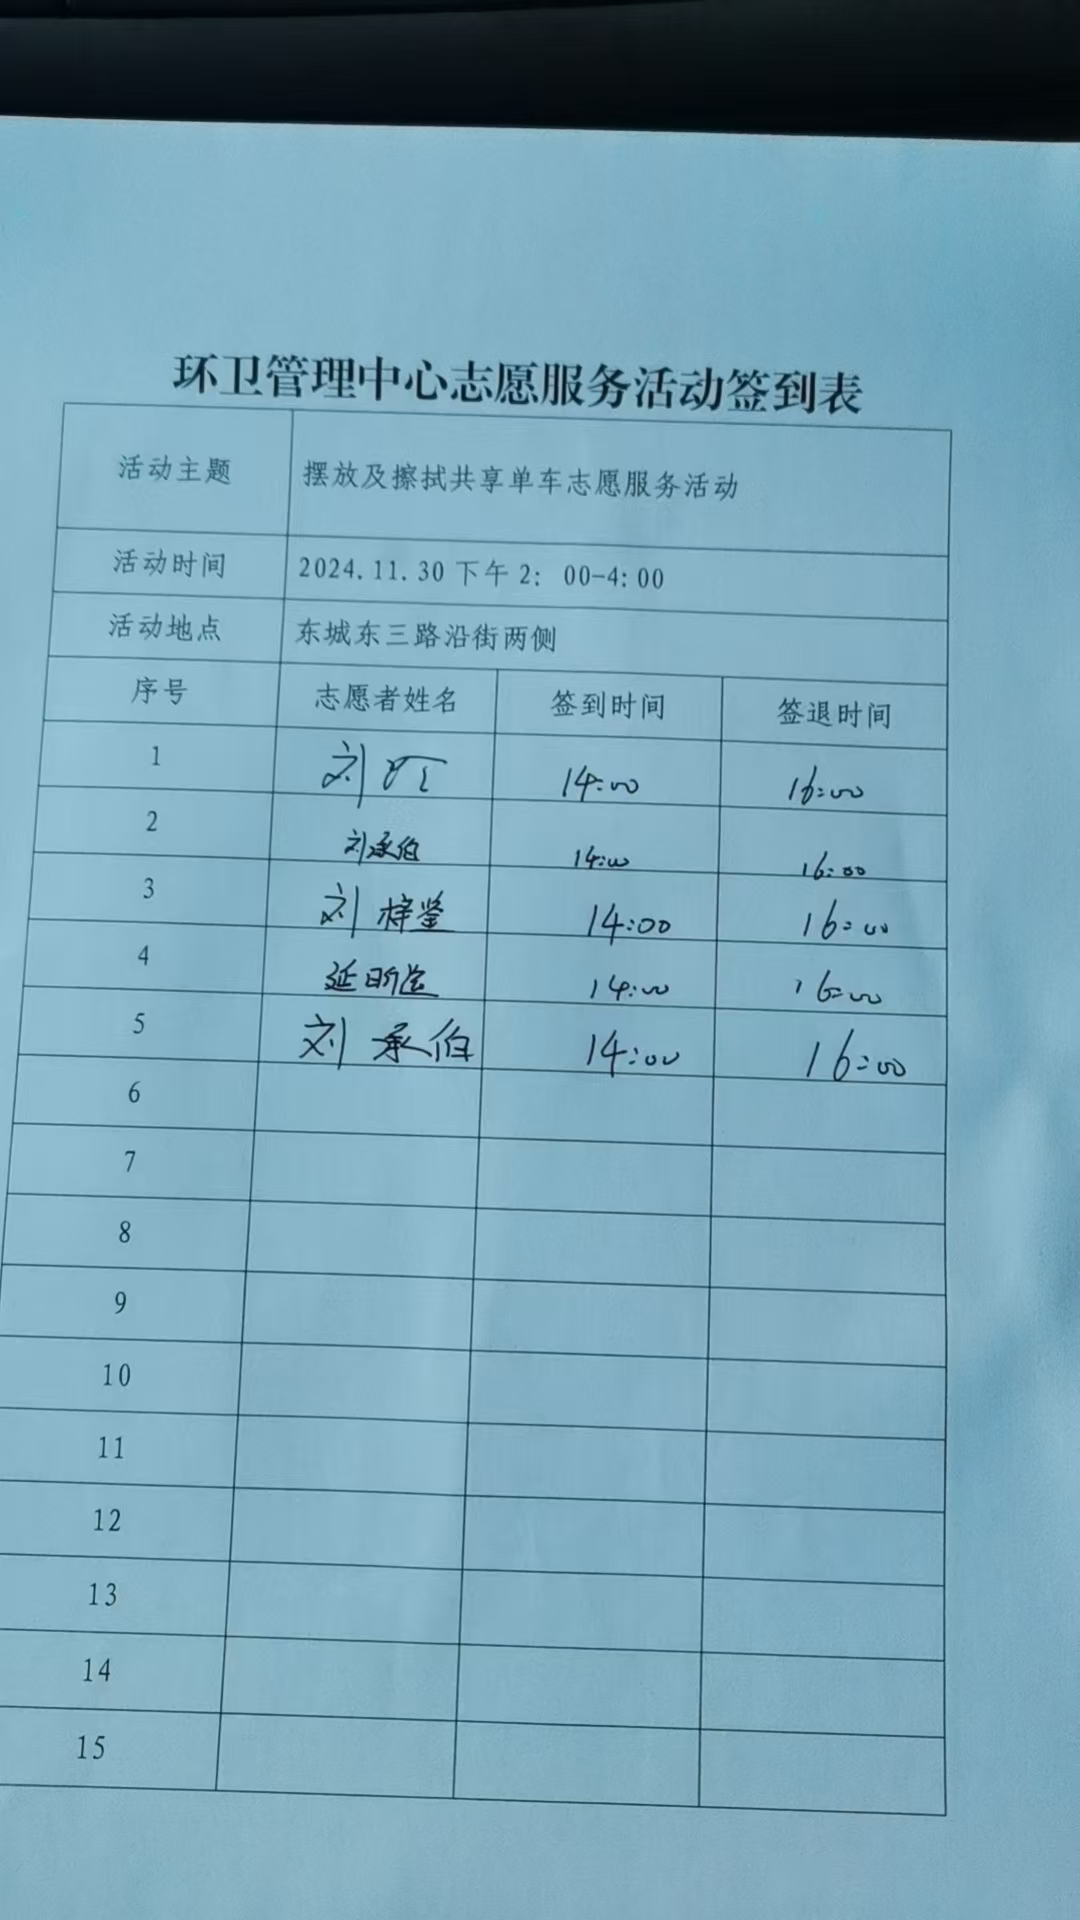 环卫管理中心志愿服务活动签到表
活动主题 摆放及擦拭共享单车志愿服务活动
活动时间 2024.11.30下午2: 00-4:00
活动地点 东城东三路沿街两侧
序号 志愿者姓名 签到时间 签退时间
1 刘 14:00 16:00
2 刘承伯 14:00 16:00
3 刘梓鉴 14:00 16:00
4 延 14:00 16:00
5 刘承伯 14:00 16:00
6
7
8
9
10
11
12
13
14
15